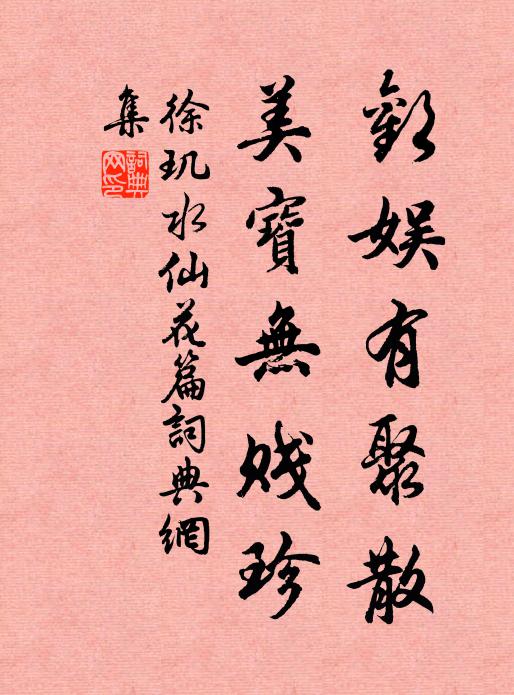 歡娱有聚散
美寶無賤珍
徐玑水仙花篇詞典網
集
詞典網印